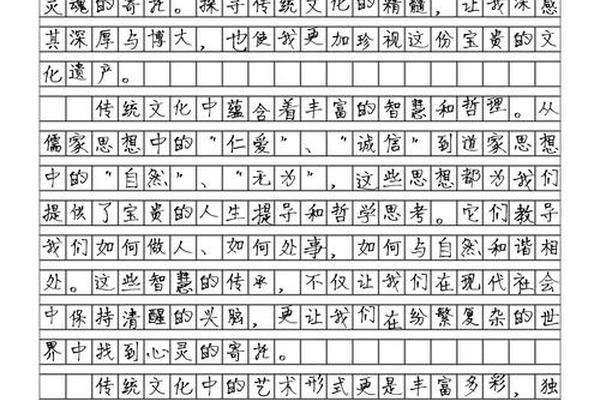 灵魂的寄托。探寻传统文化的精髓，让我深感
其深厚与博大，也使我更加珍视这份宝贵的文
化遗产。
传统文化中蕴含着丰富的智慧和哲理。从
儒家思想中的“仁爱”、“诚信”到道家思想
中的“自然”、“无为”，这些思想都为我们
提供了宝贵的人生提导和哲学思考。它们教导
我们如何做人、如何处事，如何与自然和谐相
处。这些智慧的传承，不仅让我们在现代社会
中保持清醒的头脑，更让我们在纷繁复杂的世
界中找到心灵的寄托。
传统文化中的艺术形式更是丰富多彩，独